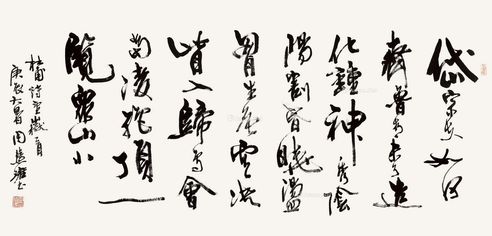 岱宗夫如何
齊魯青未了造
化鍾神秀陰
陽割昏曉盪
胸生层雲决
眥入歸鳥會
當凌絕頂一
覽眾山小
杜甫詩望嶽一首
庚辰大暑周